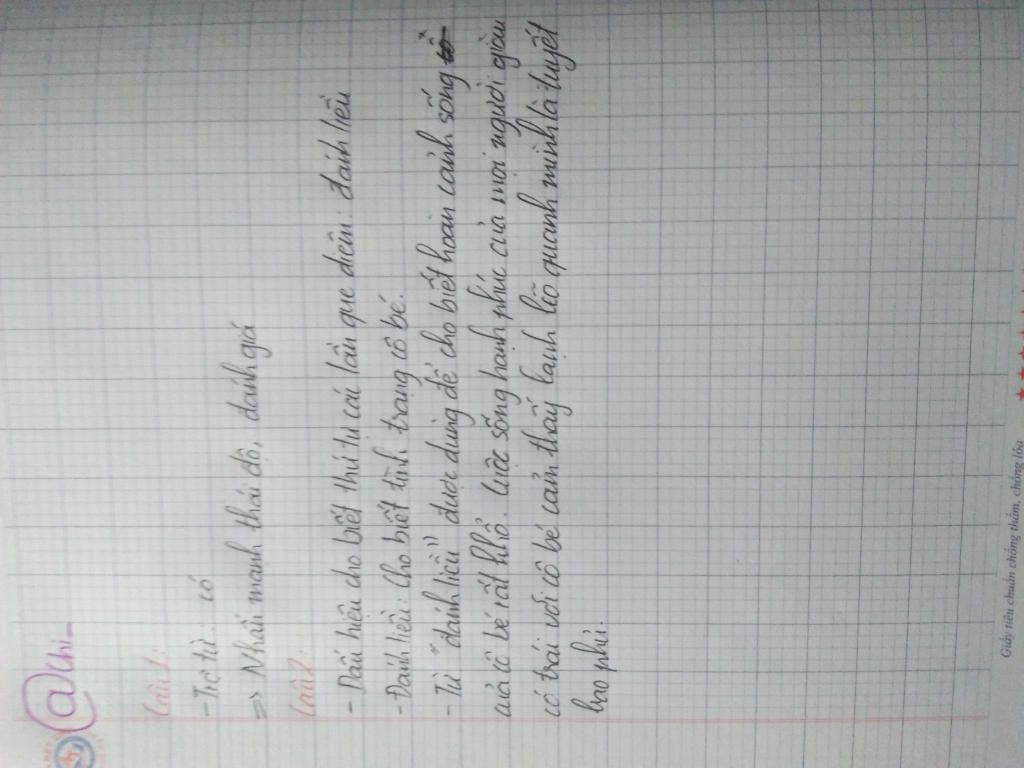 @Chi_
Câu 1:
- Trợ từ: có
=> Nhấn mạnh thái độ, đánh giá
Câu 2:
- Dấu hiệu cho biết thứ tự các lần que diêm: đánh liều
- Đánh liều: cho biết tình trạng cô bé.
- Từ "đánh liều" được dùng để cho biết hoàn cảnh sống
của cô bé rất khổ. Cuộc sống hạnh phúc của mọi người giàu
có trái với cô bé cảm thấy lạnh lẽo quanh mình là tuyết
bao phủ.
Giấy tiêu chuẩn chống thấm, chống lóa